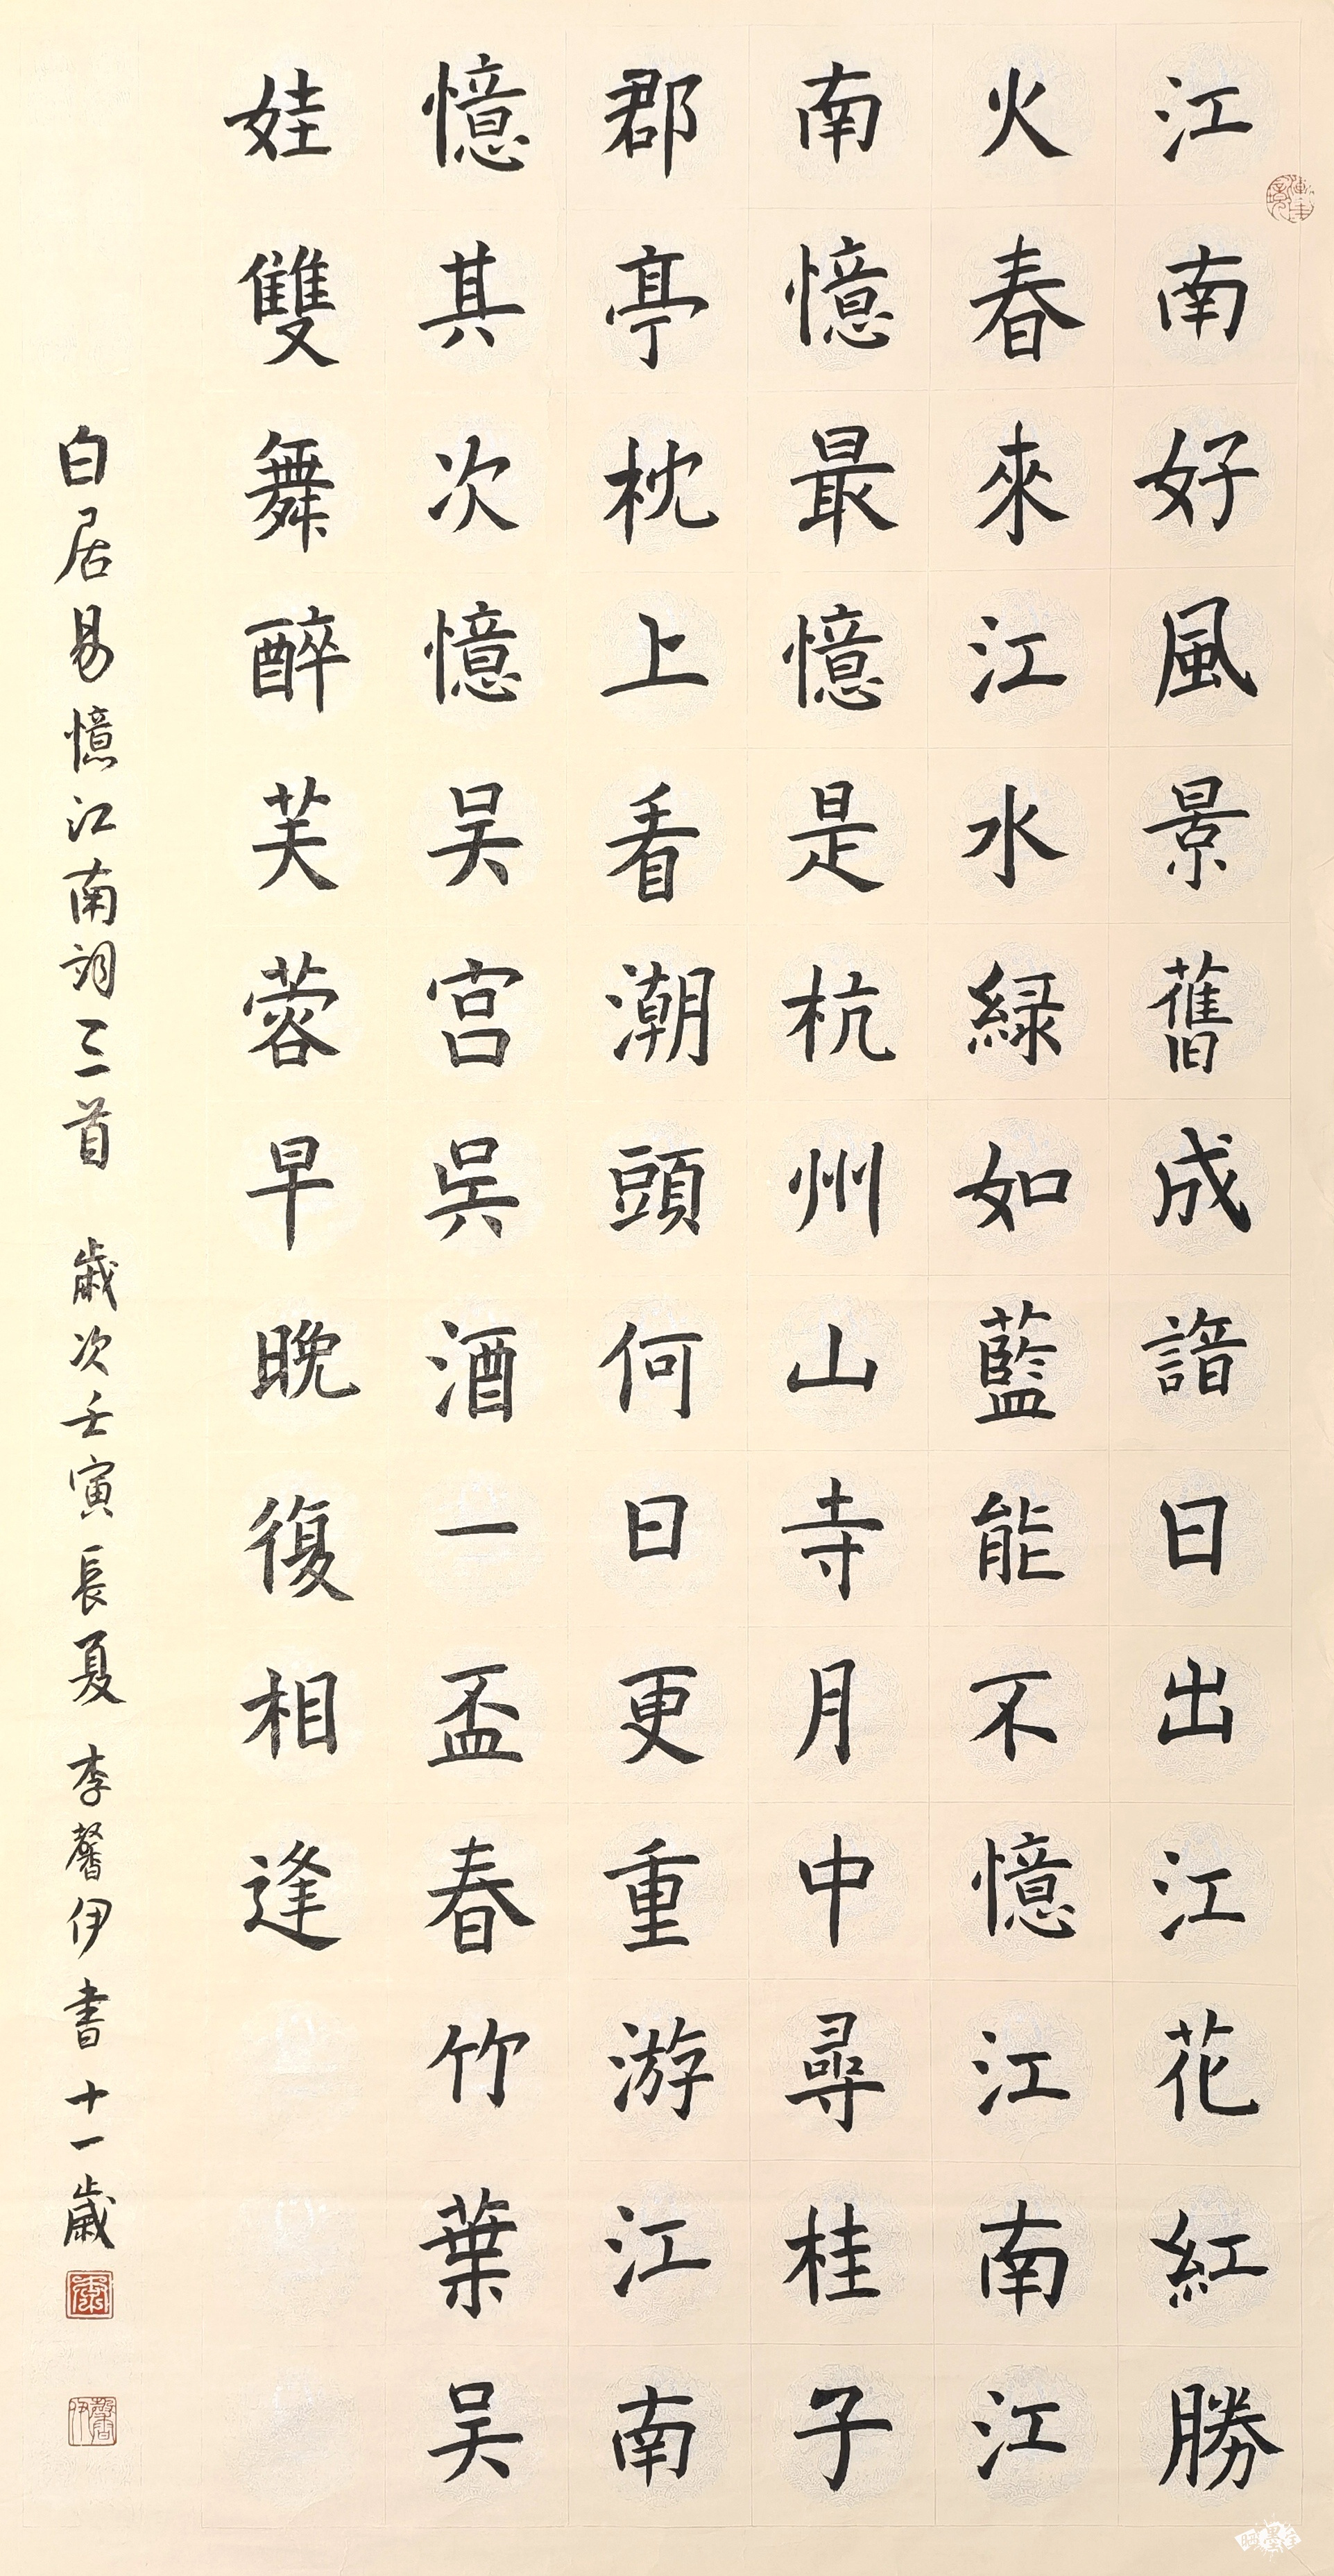 江南好風景舊成諳日出江花紅勝
火春來江水緑如藍能不憶江南江
南憶最憶是杭州山寺月中尋桂子
郡亭枕上看潮頭何日更重游江南
憶其次憶吴宫吴酒一盃春竹葉吴
娃雙舞醉芙蓉早晚復相逢
白居易憶江南詞三首 歲次壬寅長夏 李馨伊書十一歲
李
馨伊